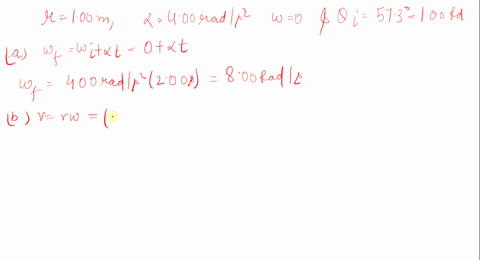 r = 1.00 m, α = 4.00 rad/s² w = 0 & θi = 57.3° = 1.00 Rd
(a) wf = wi + αt = 0 + αt
wf = 4.00 rad/s² (2.00 s) = 8.00 Rad/s
(b) v = rw = (